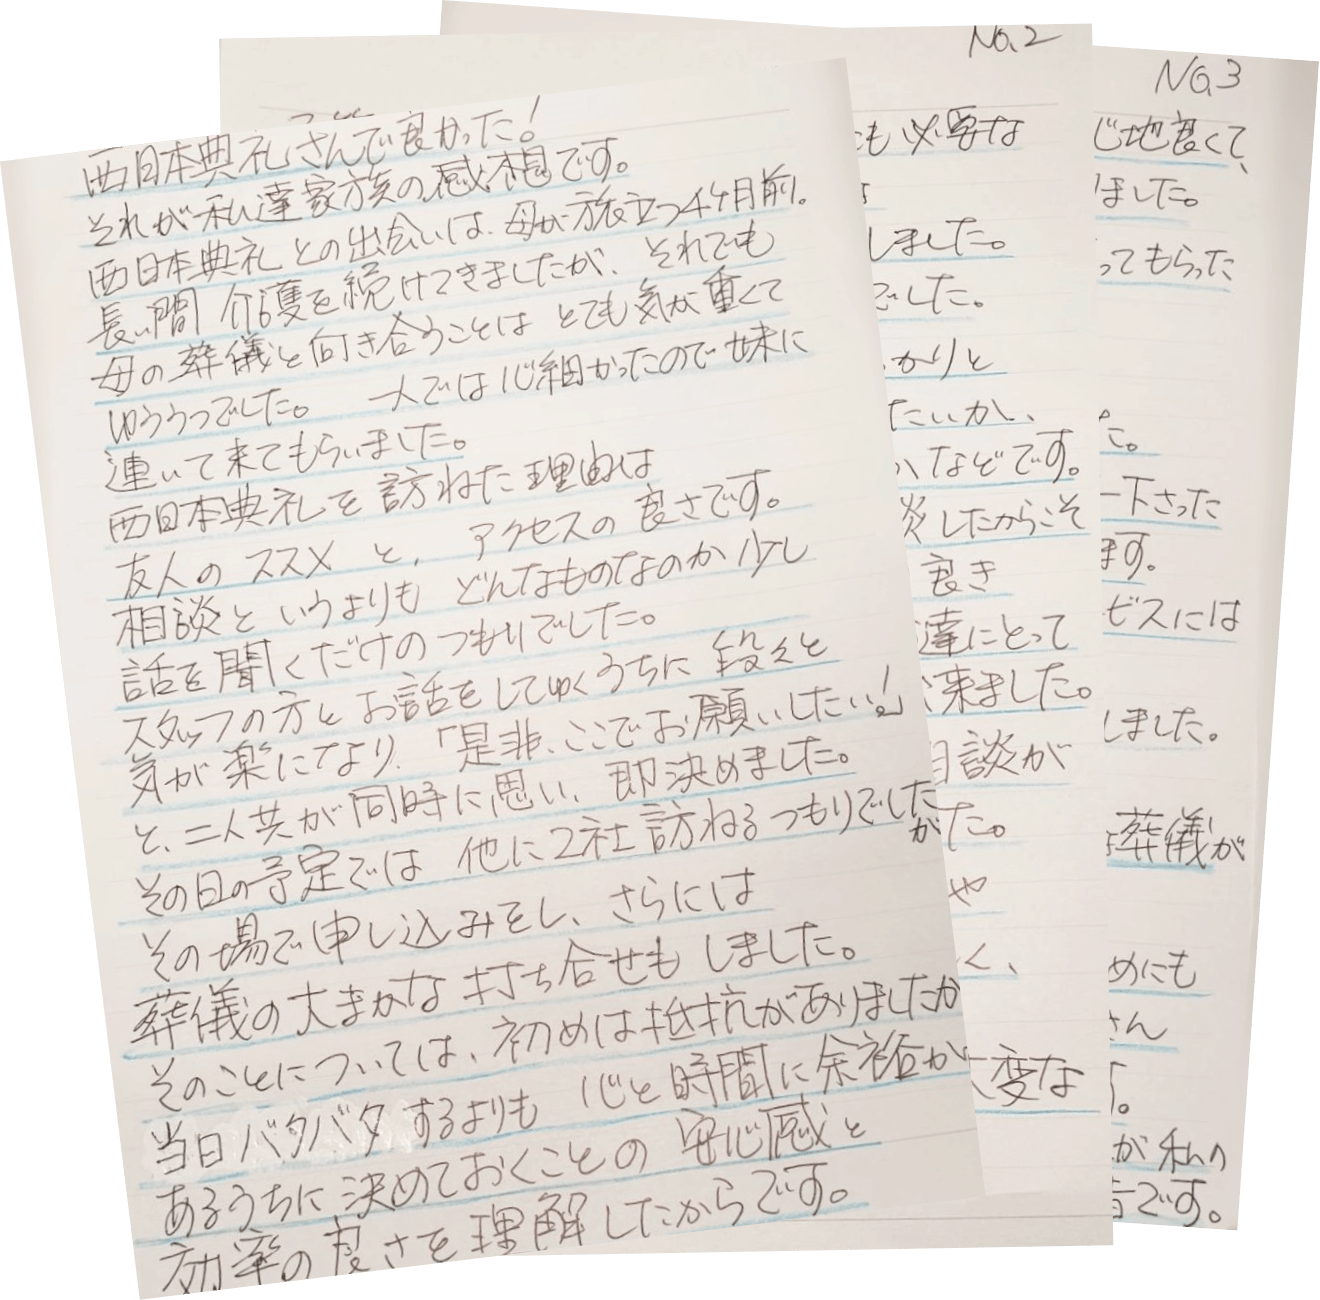 西日本典礼さんで良かった!
それが私達家族の感想です。
西日本典礼との出会いは、母が旅立つ4ヶ月前。
長い間介護を続けてきましたが、それでも
母の葬儀と向き合うことはとても気が重くて
ゆううつでした。一人では心細かったので妹に
連いて来てもらいました。
西日本典礼を訪ねた理由は
友人のススメと、アクセスの良さです。
相談というよりもどんなものなのか少し
話を聞くだけのつもりでした。
スタッフの方とお話をしてゆくうちに段々と
気が楽になり、「是非、ここでお願いしたい!」
と、二人共が同時に思い、即決めました。
その日の予定では他に2社訪ねるつもりでしたが
その場で申し込みをし、さらには
葬儀の大まかな打ち合せもしました。
そのことについては、初めは抵抗がありましたが
当日バタバタするよりも心と時間に余裕が
あるうちに決めておくことの安心感と
効率の良さを理解したからです。
No.2
も必要な
しました。
でした。
かりと
たいか、
などです。
談したからこそ
良き
達にとって
来ました。
相談が
た。
や
く、
大変な
No.3
じ地良くて、
ました。
ってもらった
た。
下さった
ます。
ビスには
しました。
葬儀が
めにも
さん
す。
が私の
です。